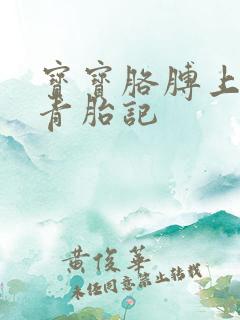 寶寶胳膊上
青胎記
黄俊華
未经同意禁止转载